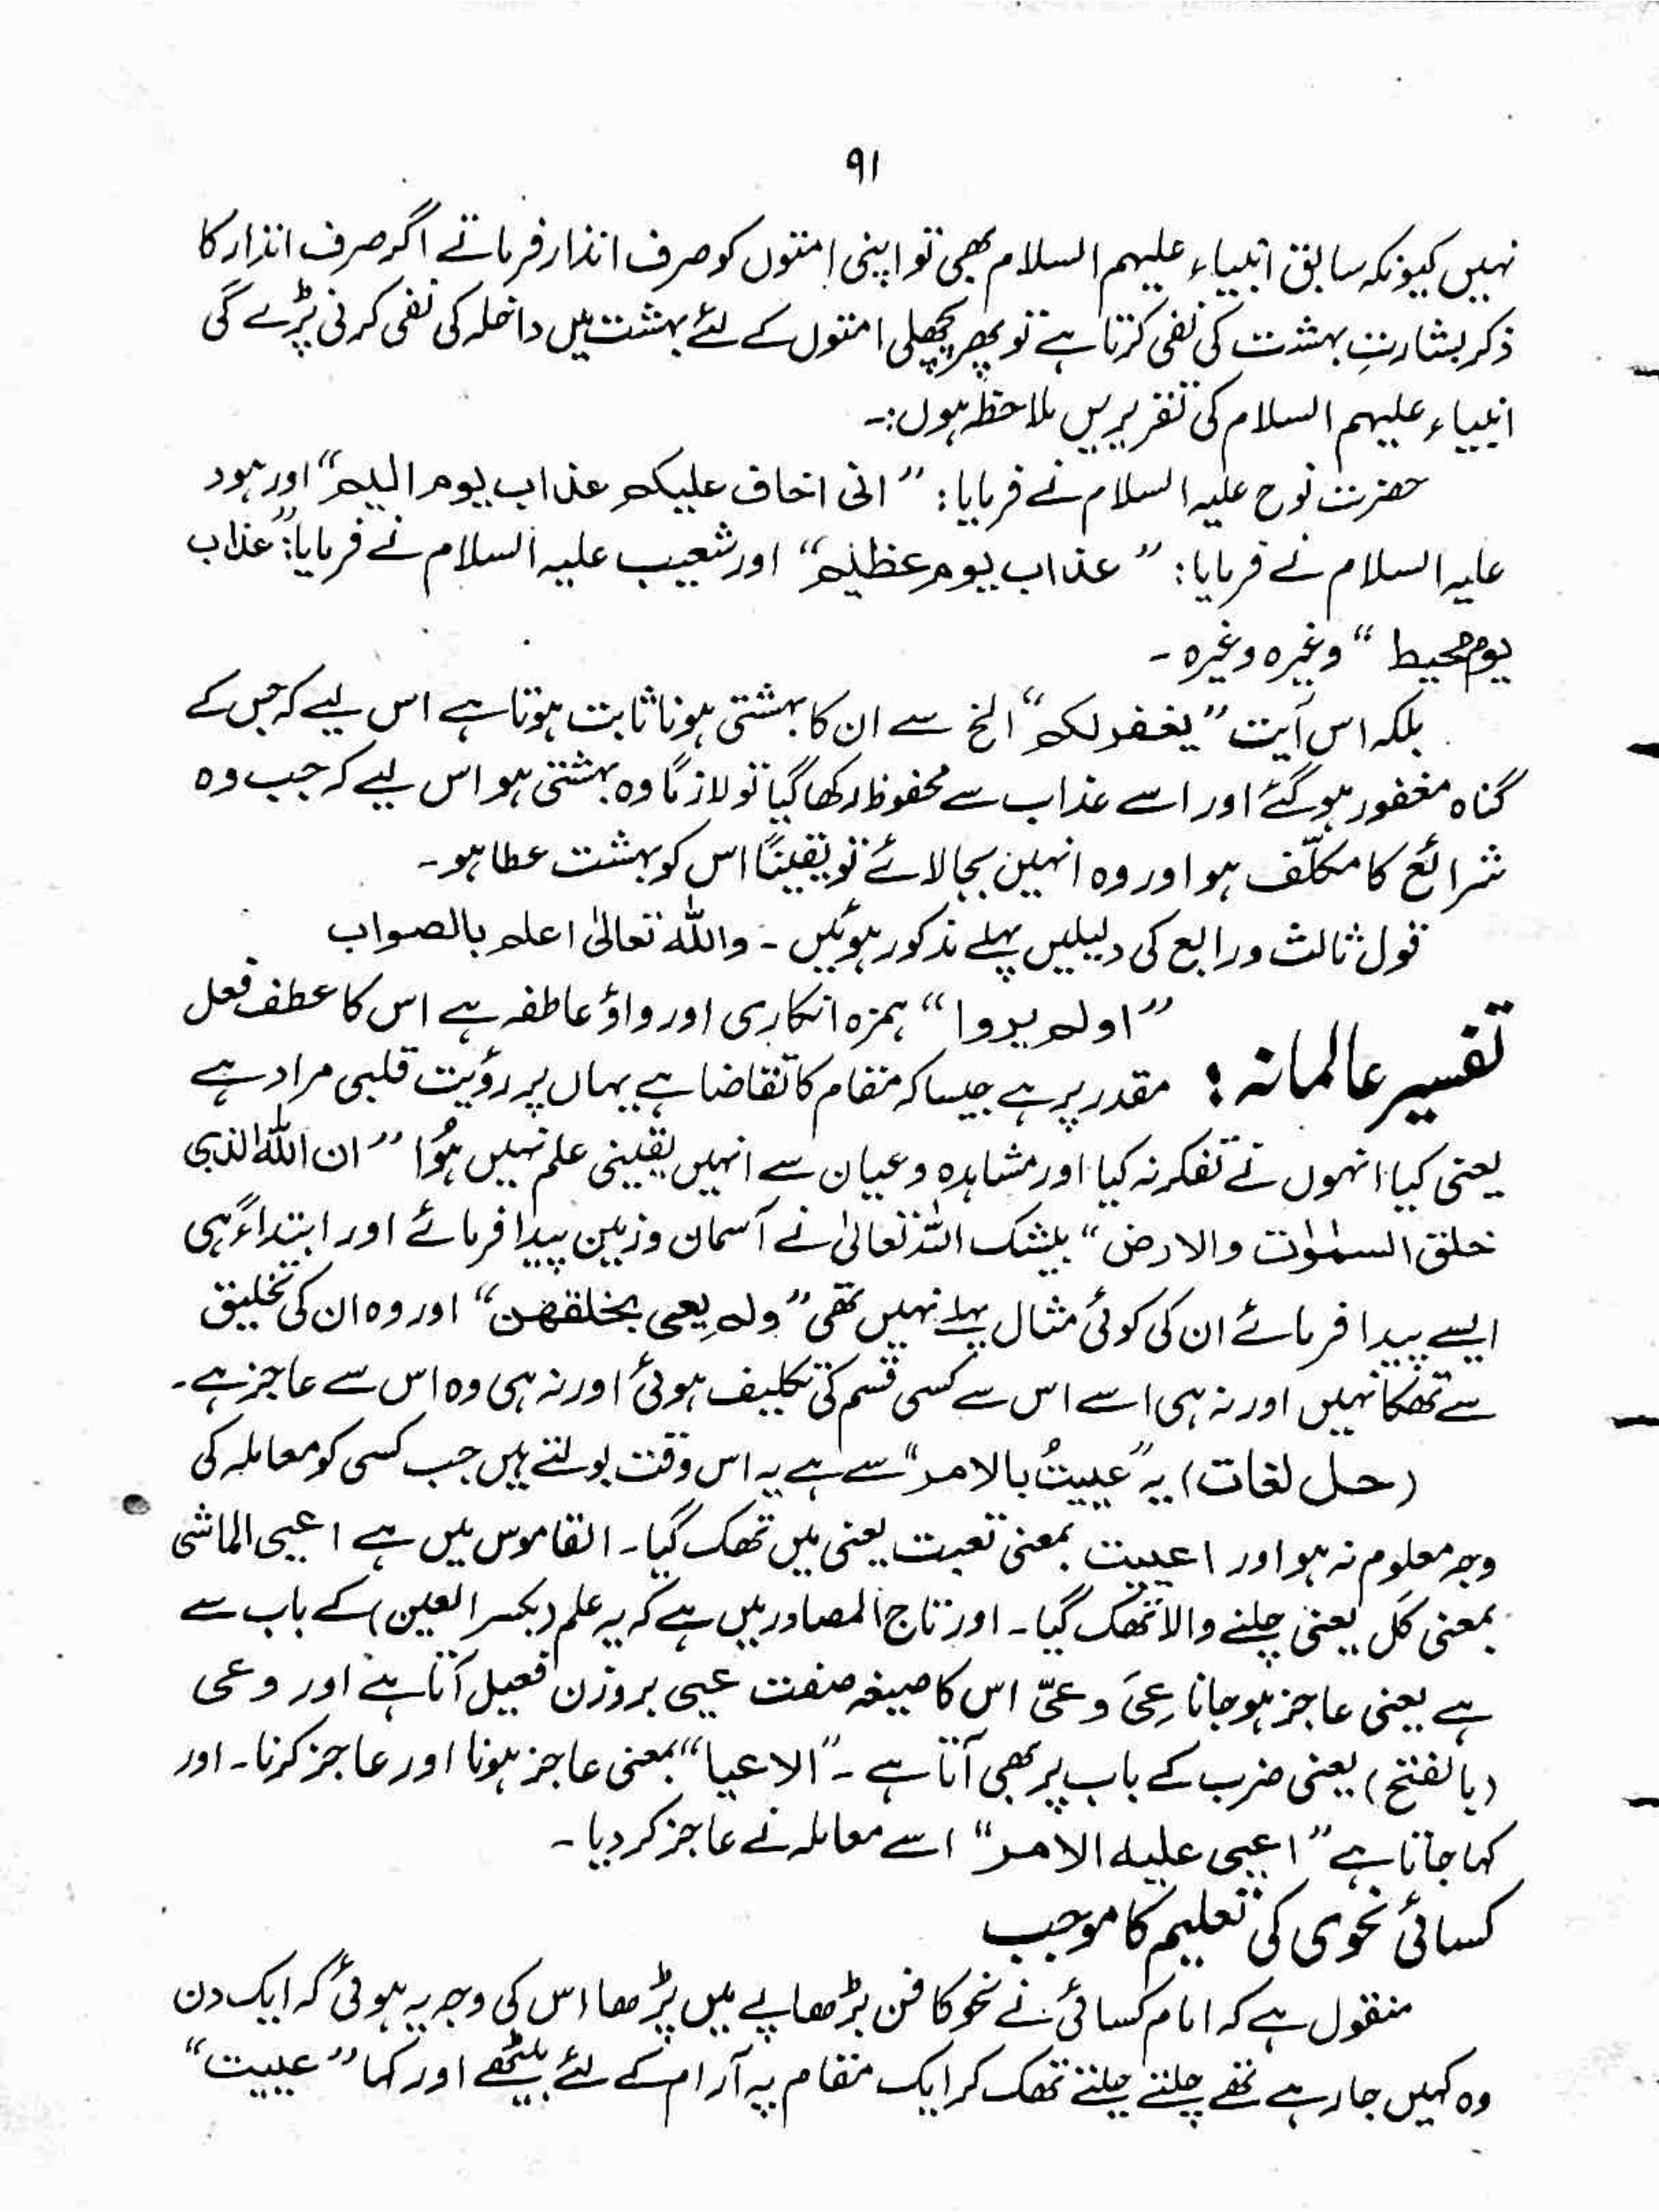 ۹۱
نہیں کیونکہ سابق انبیاء علیہم السلام بھی تو اپنی امتوں کو صرف انذار فرماتے اگر صرف انذار کا
ذکر بشارتِ بہشت کی نفی کرتا ہے تو پھر پچھلی امتوں کے لئے بہشت میں داخلہ کی نفی کرنی پڑے گی
انبیاء علیہم السلام کی تقریریں ملاحظہ ہوں:۔
حضرت نوح علیہ السلام نے فرمایا: ”انی اخاف علیکم عذاب یوم الیم“ اور ہود
علیہ السلام نے فرمایا: ”عذاب یوم عظیم“ اور شعیب علیہ السلام نے فرمایا: ”عذاب
یوم محیط“ وغیرہ وغیرہ۔
بلکہ اس آیت ”یغفر لکم“ الخ سے ان کا بہشتی ہونا ثابت ہوتا ہے اس لیے کہ جس کے
گناہ مغفور ہو گئے اور اسے عذاب سے محفوظ رکھا گیا تو لازمًا وہ بہشتی ہو اس لیے کہ جب وہ
شرائع کا مکلّف ہو اور وہ انہیں بجا لائے تو یقینًا اس کو بہشت عطا ہو۔
قول ثالث و رابع کی دلیلیں پہلے مذکور ہوئیں۔ واللہ تعالیٰ اعلم بالصواب
”اولم یروا“ ہمزہ انکاری اور واؤ عاطفہ ہے اس کا عطف فعل
تفسیر عالمانہ: مقدر پر ہے جیسا کہ مقام کا تقاضا ہے یہاں پر رؤیت قلبی مراد ہے
یعنی کیا انہوں نے تفکر نہ کیا اور مشاہدہ و عیان سے انہیں یقینی علم نہیں ہُوا ”ان اللہ الذی
خلق السمٰوٰت والارض“ بیشک اللہ تعالیٰ نے آسمان و زمین پیدا فرمائے اور ابتداءً ہی
ایسے پیدا فرمائے ان کی کوئی مثال پہلے نہیں تھی ”ولم یعی بخلقھن“ اور وہ ان کی تخلیق
سے تھکا نہیں اور نہ ہی اسے اس سے کسی قسم کی تکلیف ہوئی اور نہ ہی وہ اس سے عاجز ہے۔
(حل لغات) یہ ”عییتُ بالامر“ سے ہے یہ اس وقت بولتے ہیں جب کسی کو معاملہ کی
وجہ معلوم نہ ہو اور اعییت بمعنی تعبت یعنی میں تھک گیا۔ القاموس میں ہے اعیی الماشی
بمعنی کَل یعنی چلنے والا تھک گیا۔ اور تاج المصادر میں ہے کہ یہ علم (بکسر العین) کے باب سے
ہے یعنی عاجز ہو جانا عِیَ و عیّ اس کا صیغہ صفت عیی بروزن فعیل آتا ہے اور وعی
(بالفتح) یعنی ضرب کے باب پر بھی آتا ہے۔ ”الاعیا“ بمعنی عاجز ہونا اور عاجز کرنا۔ اور
کہا جاتا ہے ”اعیی علیہ الامر“ اسے معاملہ نے عاجز کر دیا۔
کسائی نحوی کی تعلیم کا موجب
منقول ہے کہ امام کسائی نے نحو کا فن بڑھاپے میں پڑھا اس کی وجہ یہ ہوئی کہ ایک دن
وہ کہیں جا رہے تھے چلتے چلتے تھک کر ایک مقام پہ آرام کے لئے بیٹھے اور کہا ”عییت“